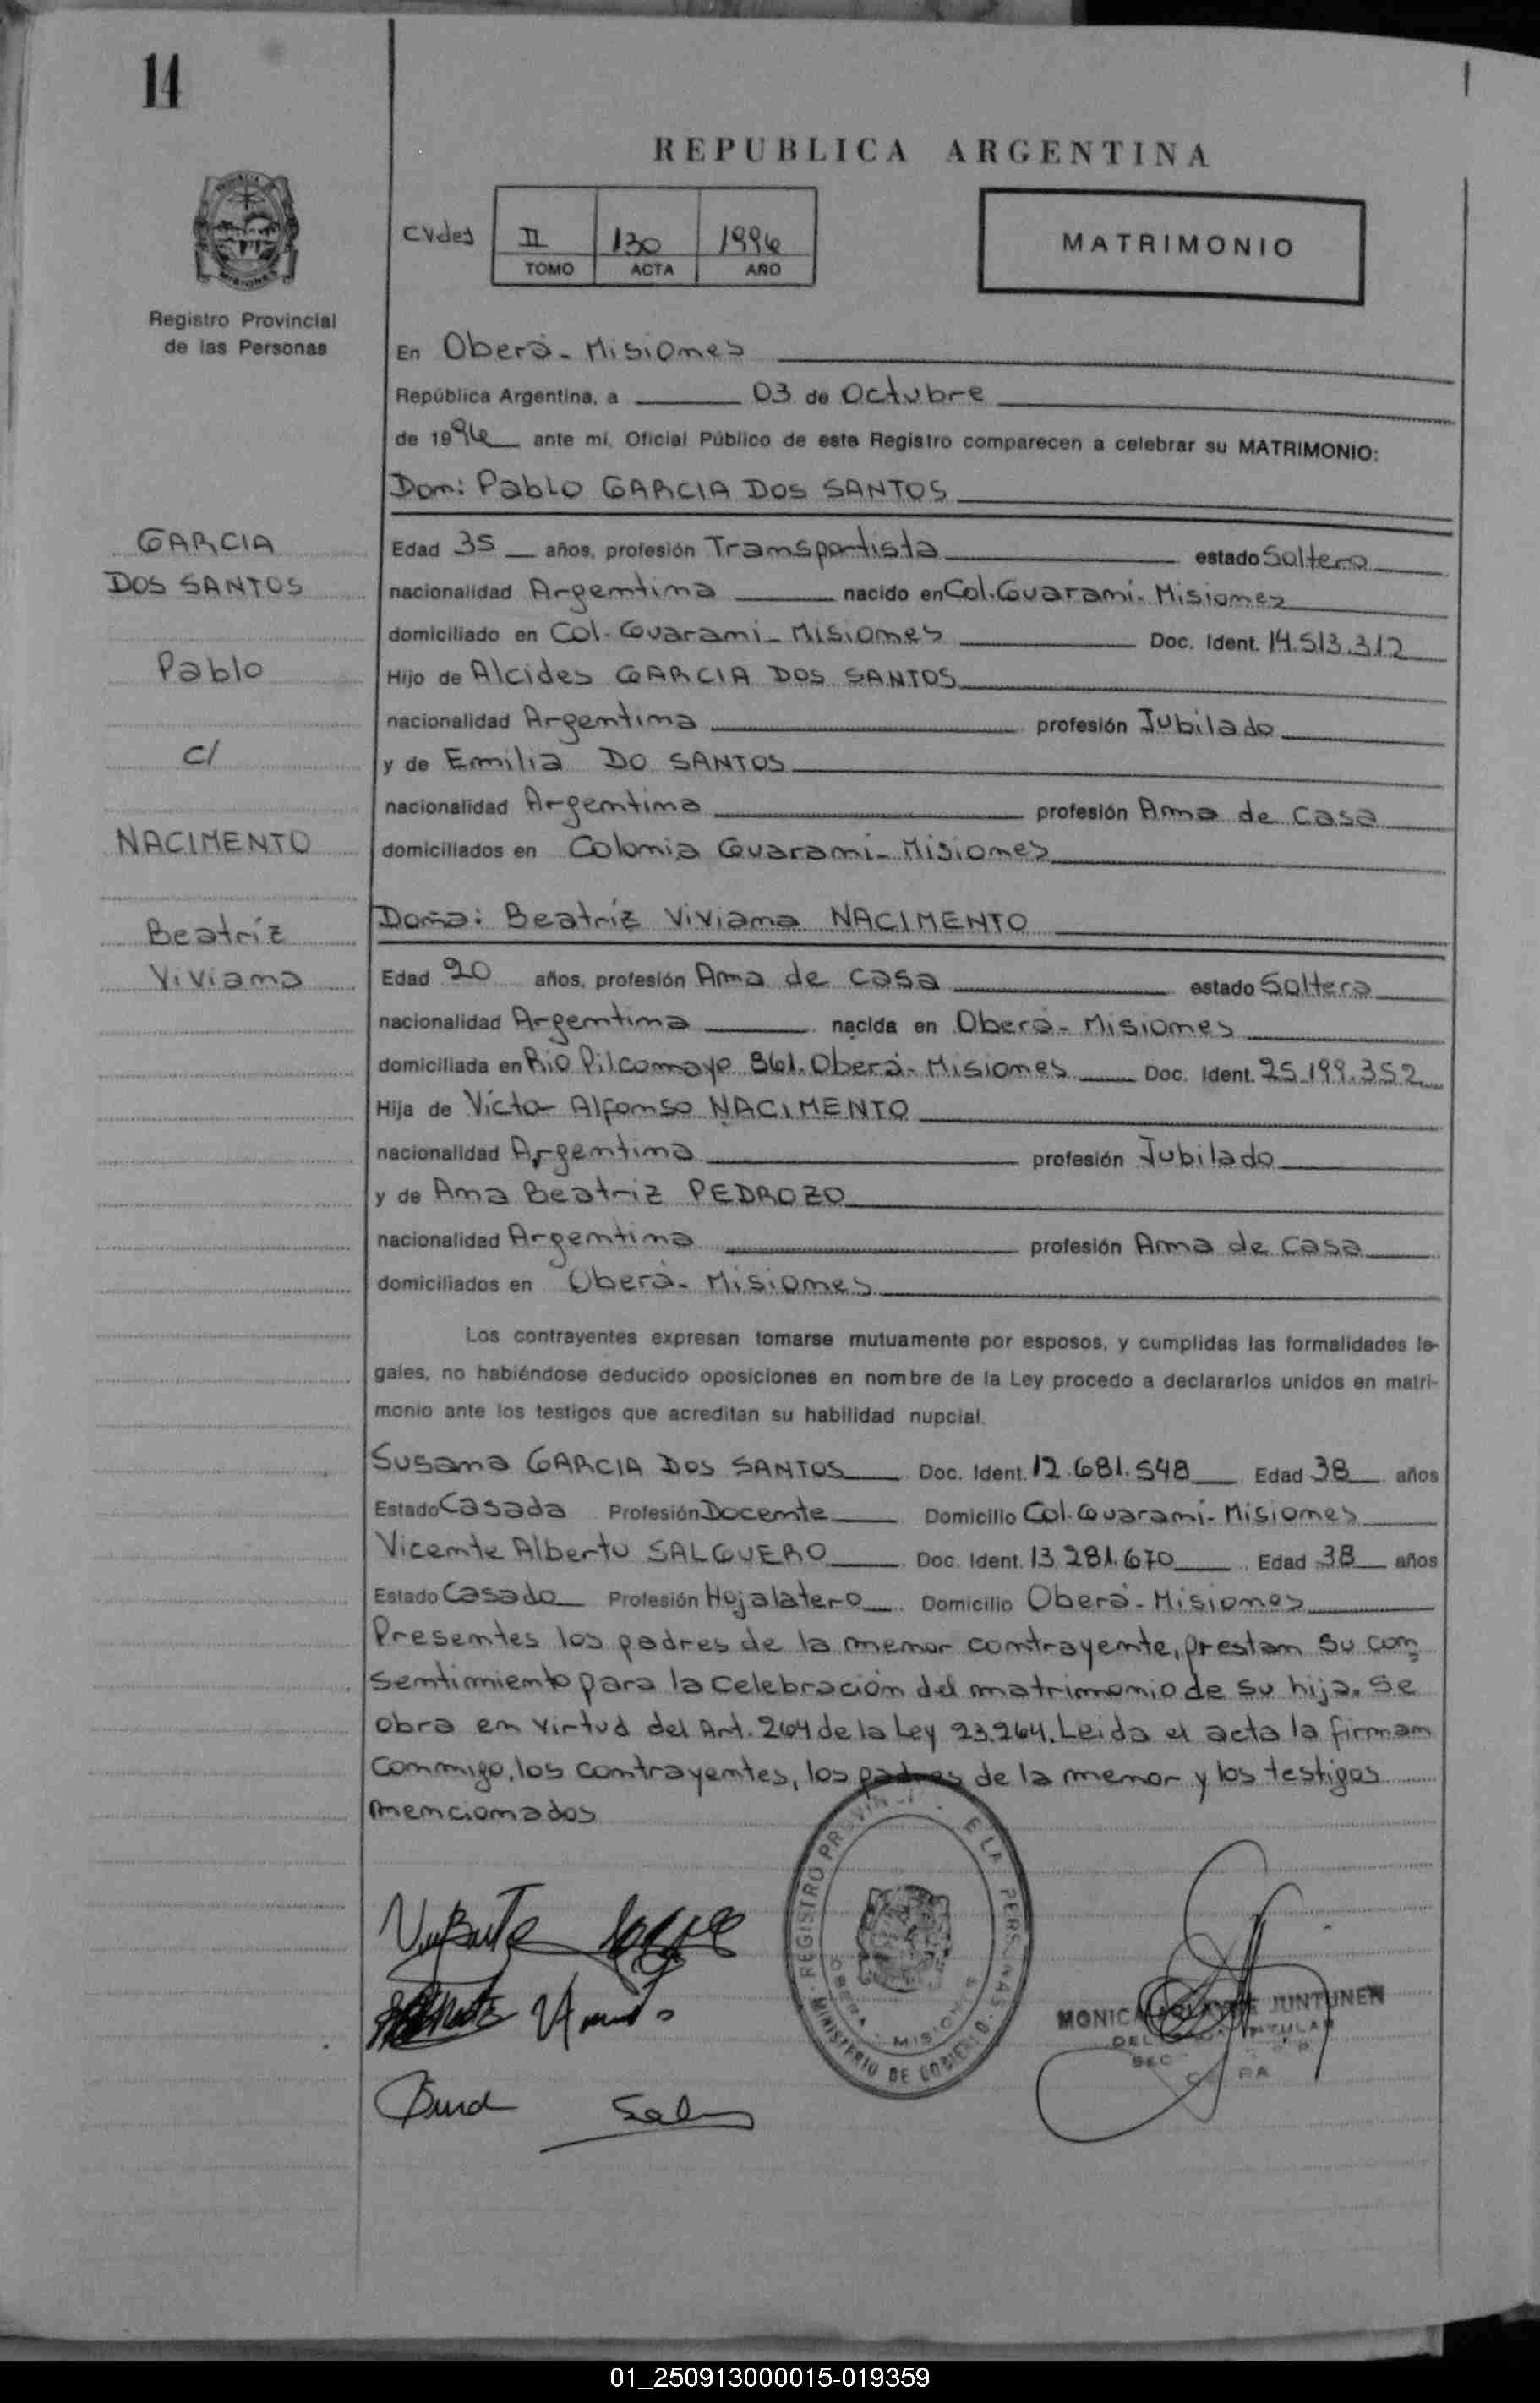 14
REPUBLICA ARGENTINA
CVdes II 130 1996
TOMO ACTA AÑO
MATRIMONIO
Registro Provincial
de las Personas
En Oberá - Misiones
República Argentina, a 03 de Octubre
de 1996 ante mí, Oficial Público de este Registro comparecen a celebrar su MATRIMONIO:
Don: Pablo GARCIA DOS SANTOS
GARCIA
DOS SANTOS
Pablo
c/
NACIMENTO
Beatríz
Viviana
Edad 35 años, profesión Transportista estado Soltero
nacionalidad Argentina nacido en Col. Guaraní - Misiones
domiciliado en Col. Guaraní - Misiones Doc. Ident. 14.513.312
Hijo de Alcides GARCIA DOS SANTOS
nacionalidad Argentina profesión Jubilado
y de Emilia DO SANTOS
nacionalidad Argentina profesión Ama de casa
domiciliados en Colonia Guaraní - Misiones
Doña: Beatríz Viviana NACIMENTO
Edad 20 años, profesión Ama de casa estado Soltera
nacionalidad Argentina nacida en Oberá - Misiones
domiciliada en Río Pilcomayo 861. Oberá - Misiones Doc. Ident. 25.199.352
Hija de Víctor Alfonso NACIMENTO
nacionalidad Argentina profesión Jubilado
y de Ana Beatriz PEDROZO
nacionalidad Argentina profesión Ama de casa
domiciliados en Oberá - Misiones
Los contrayentes expresan tomarse mutuamente por esposos, y cumplidas las formalidades le-
gales, no habiéndose deducido oposiciones en nombre de la Ley procedo a declararlos unidos en matri-
monio ante los testigos que acreditan su habilidad nupcial.
Susana GARCIA DOS SANTOS Doc. Ident. 12.681.548 Edad 38 años
Estado Casada Profesión Docente Domicilio Col. Guaraní - Misiones
Vicente Alberto SALGUERO Doc. Ident. 13.281.670 Edad 38 años
Estado Casado Profesión Hojalatero Domicilio Oberá - Misiones
Presentes los padres de la menor contrayente, prestan su con
sentimiento para la celebración del matrimonio de su hija. Se
obra en virtud del Art. 264 de la Ley 23.264. Leida el acta la firman
conmigo, los contrayentes, los padres de la menor y los testigos
mencionados
REGISTRO PROVIN E LA PERSONAS
MINISTERIO DE GOBIERNO
OBERA - MISIONES
MONICA JUNTUNEN
01_250913000015-019359